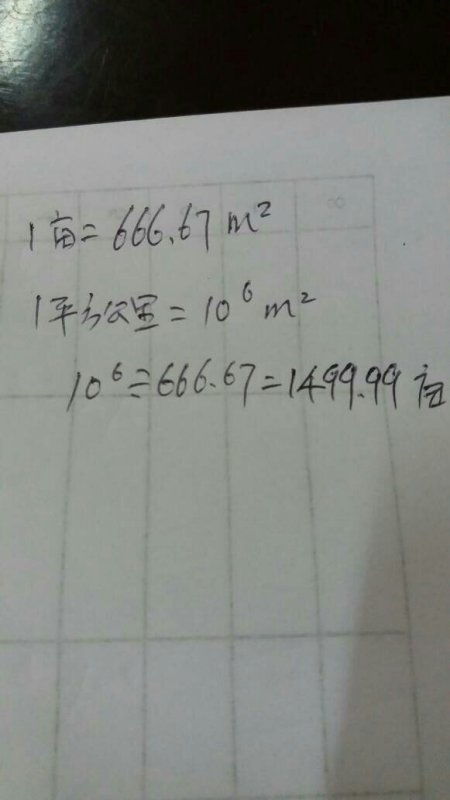 1亩=666.67m²
1平方公里=10⁶m²
10⁶÷666.67=1499.99亩